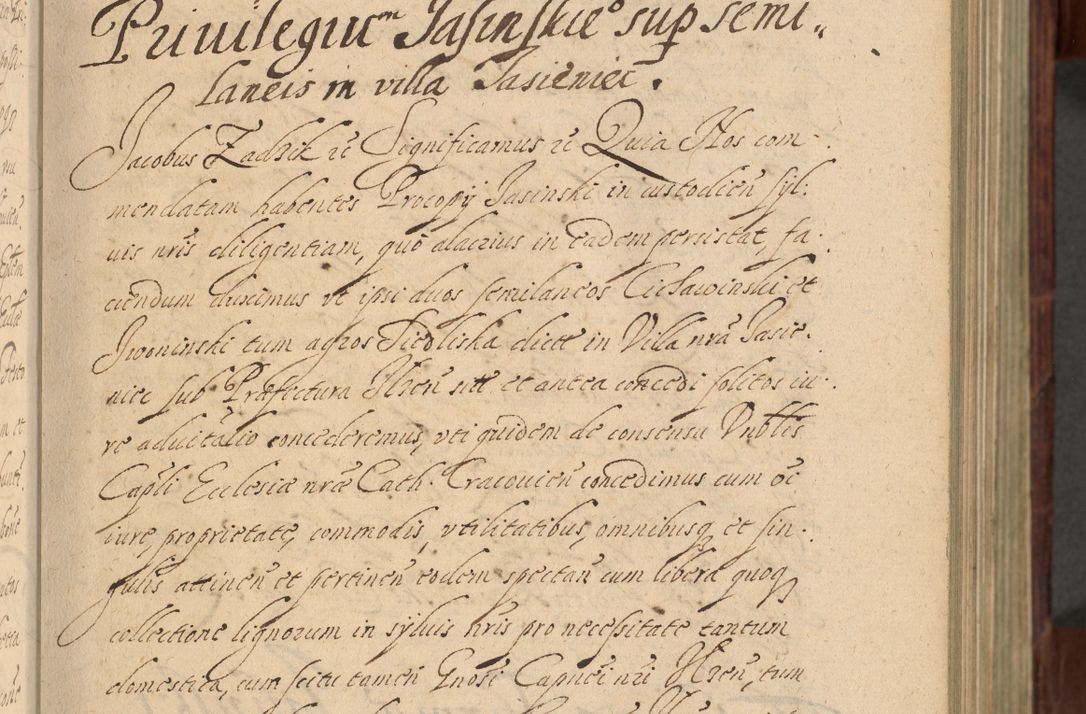 Priuilegiu͞m Jasinskie͞o sup semi„
laneis in villa Jasieniec.
Jacobus Zadzik r͞c Significamus r͞c Quia Nos com-
mendatam habentes Procopÿ Jasinski in custodien͞ syl:
uis nr͞is diligentiam, quo alacrius in eadem persistat, fa:
ciendum duximus vt ipsi duos semilaneos Cichawinski et
Iwoninski tum agros Siedliska dict͞ in Villa nr͞a Jasie:
niec sub Præfectura Ilzen͞ sitt͞ et antea concedi solitos iu-
re aduitalio concederemus, vti quidem de consensu Vn͞blis
Cap͞li Ecclesiæ nr͞æ Cath. Cracouien͞ concedimus cum o͞i
iure, proprietate, commodis, vtilitatibus, omnibusq, et sin:
gulis attinen͞ et pertinen͞ eodem spectan͞ cum libera quoq
collectione lignorum in syluis nr͞is pro necessitate tantum
domestica, cum scitu tamen Gnosi Capnei nr͞i Ilzen͞, tum